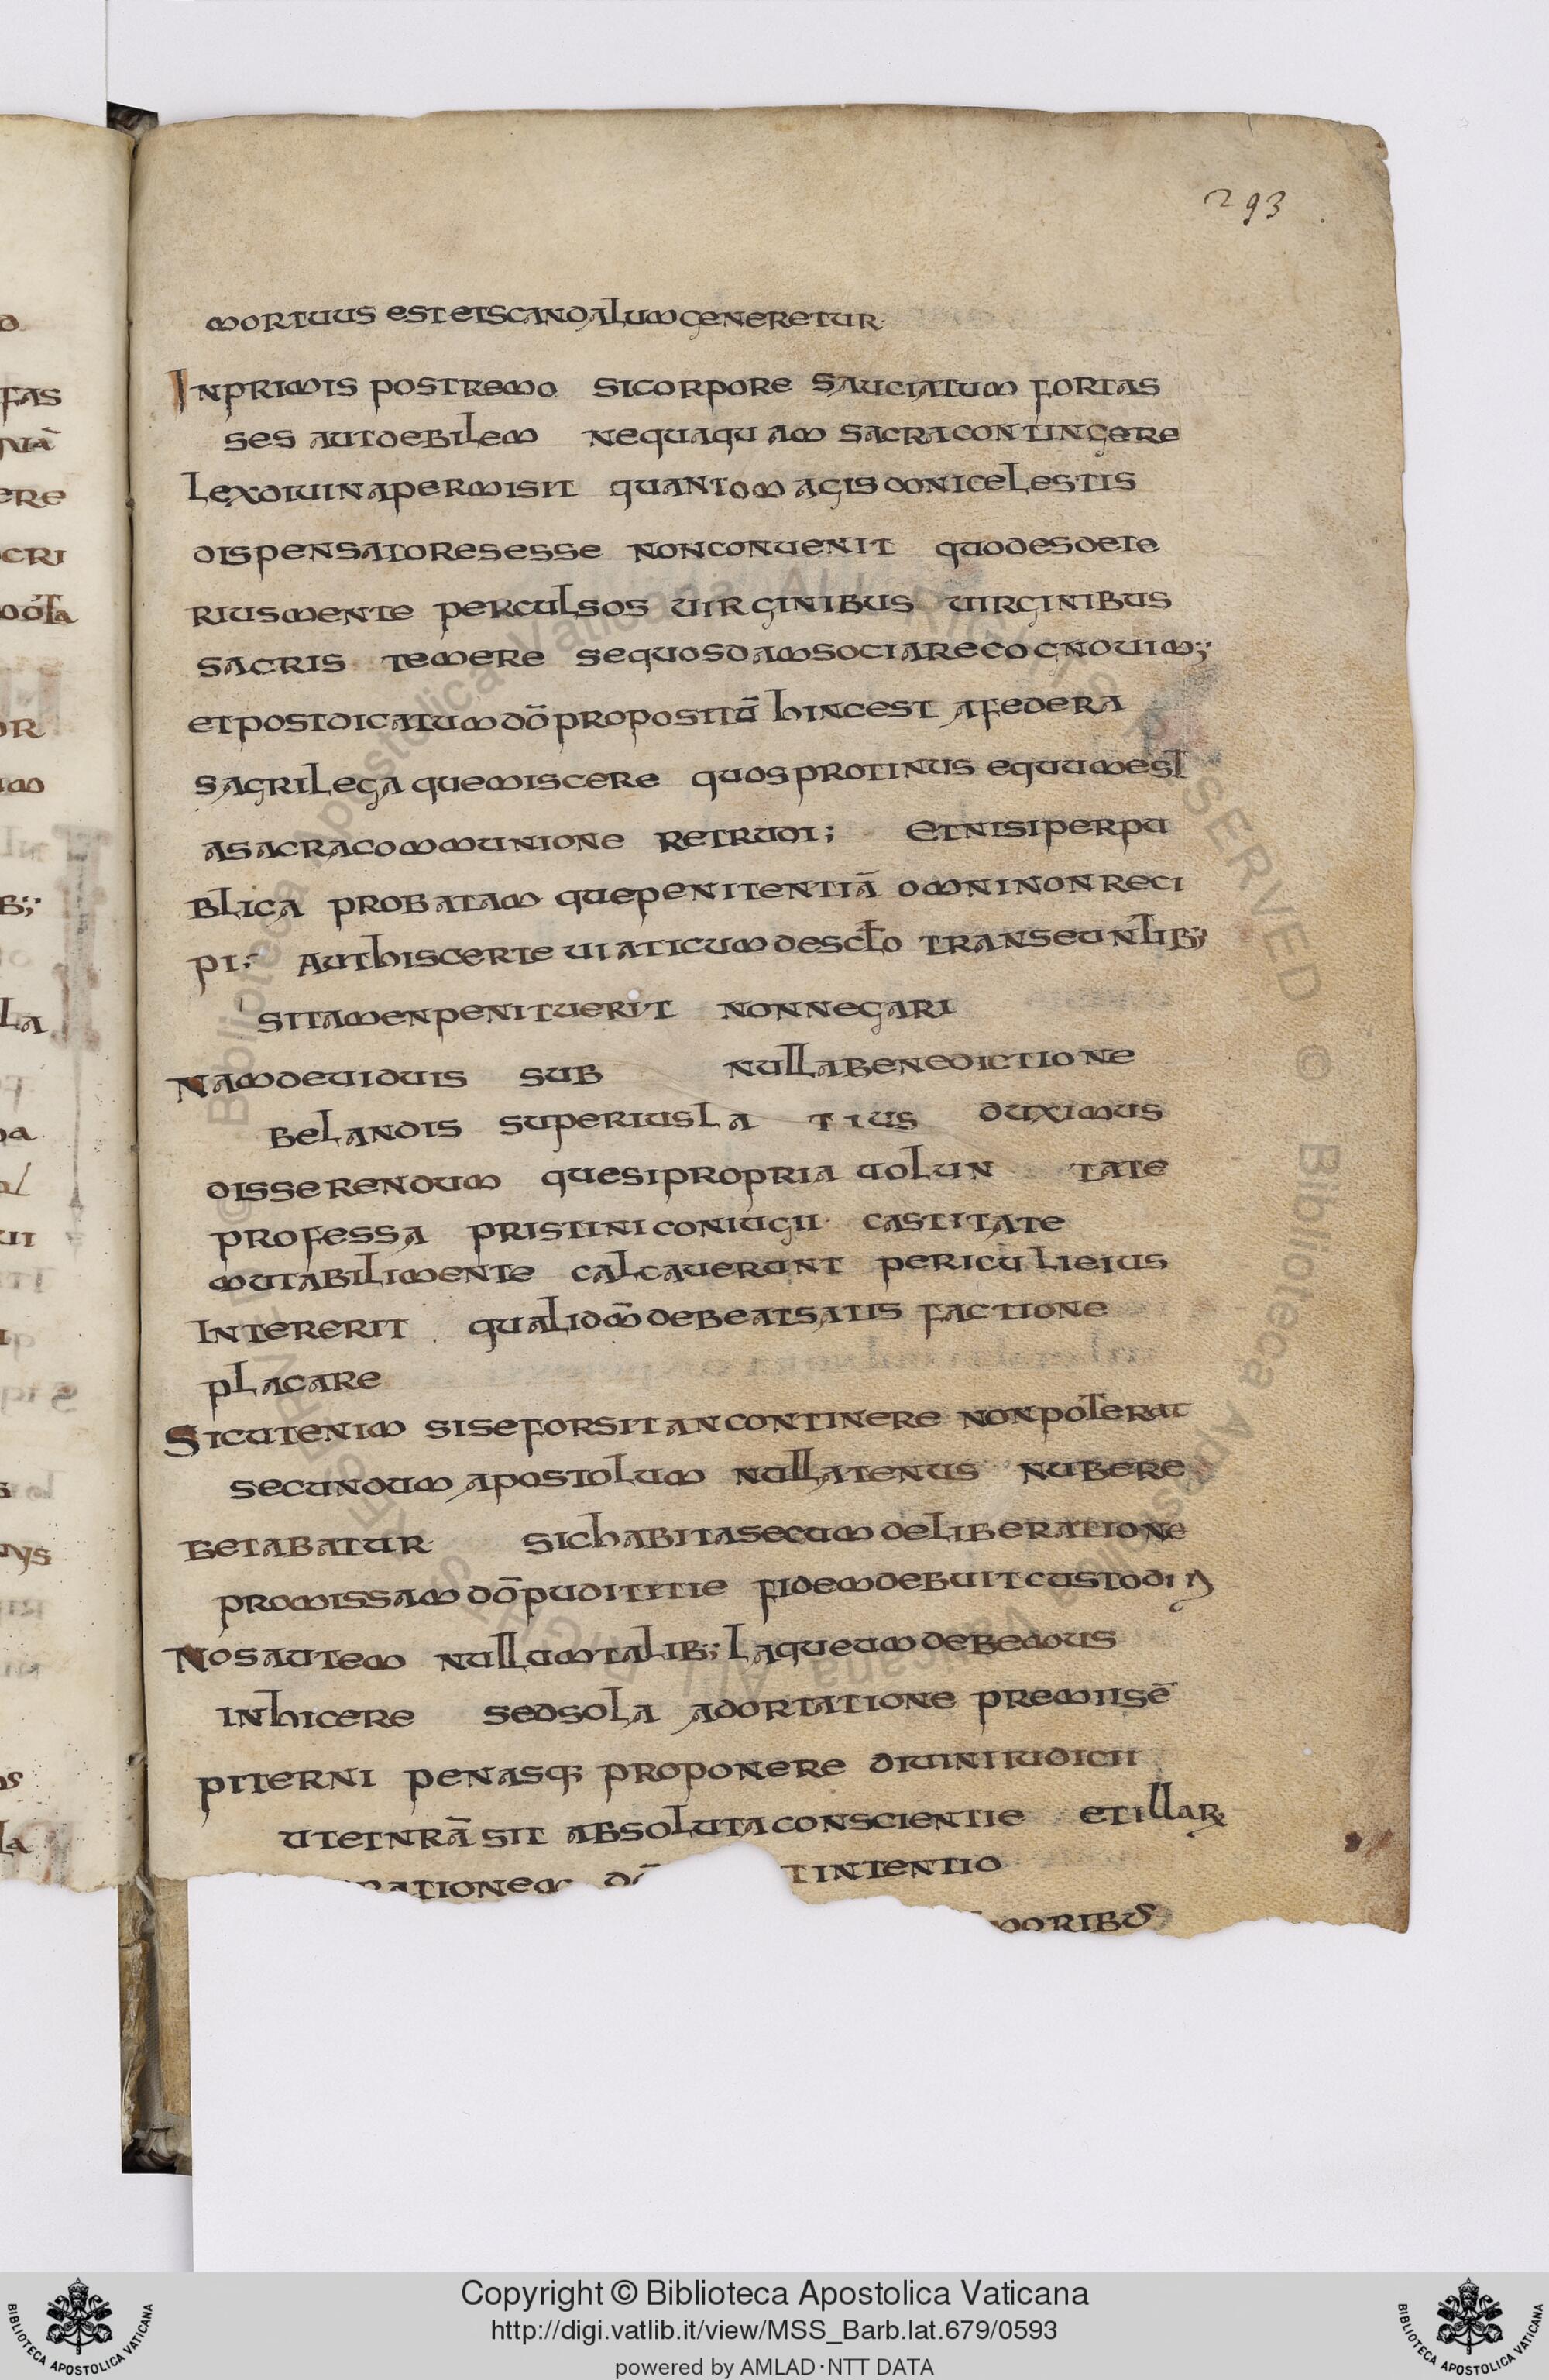 293
mortuus est et scandalum generetur
In primis postremo si corpore sauciatum fortas
ses aut debilem nequaquam sacra contingere
lex divina permisit quanto magis doni celestis
dispensatores esse non convenit quod es dete
rius mente perculsos virginibus virginibus
sacris temere se quosdam sociare cognovim;
et post dicatum dō propositū hinc est a federa
sacrilegaque miscere quos protinus equum est
a sacra communione retrudi; et nisi per pu
blica probatamque penitentiā omni non reci
pi; aut his certe viaticum de sclo transeuntib;
si tamen penituerit non negari
Nam de viduis sub nulla benedictione
belandis superius latius duximus
disserendum que si propria volun tate
professa pristini coniugii castitate
mutabili mente calcaverunt periculi eius
intererit quali dm̄ debeat satisfactione
placare
Sicut enim si se forsitan continere non poterat
secundum apostolum nullatenus nubere
betabatur sic habita secum deliberatione
promissam dō pudititie fidem debuit custodi
Nos autem nullum talib; laqueum debemus
inhicere sed sola adortatione premii sē
piterni penasq; proponere divini iudicii
ut et nrā sit absoluta conscientie et illar
rationem dō t intentio
moribus
Copyright © Biblioteca Apostolica Vaticana
http://digi.vatlib.it/view/MSS_Barb.lat.679/0593
powered by AMLAD·NTT DATA
BIBLIOTECA APOSTOLICA VATICANA
BIBLIOTECA APOSTOLICA VATICANA